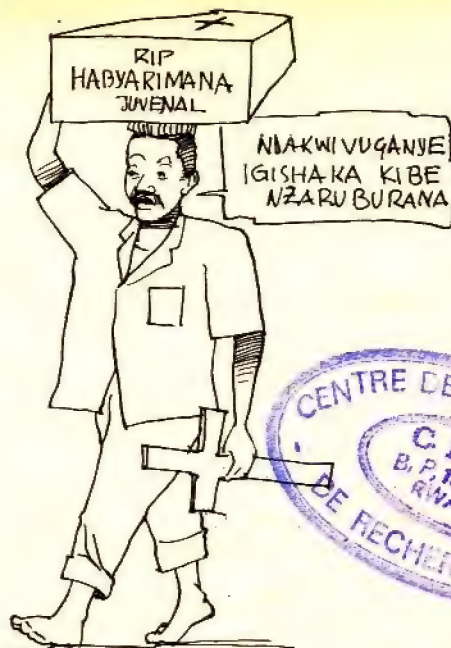 RIP
HABYARIMANA
JUVENAL
NDAKWIVUGANYE
IGISHAKA KIBE
NZARUBURANA
CENTRE DE
C.
B.P.
DE